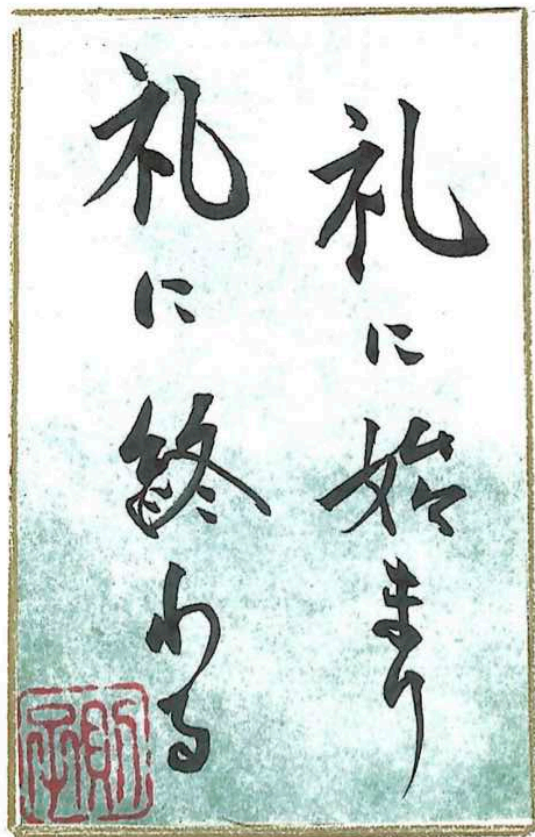 礼に始まり
礼に終わる